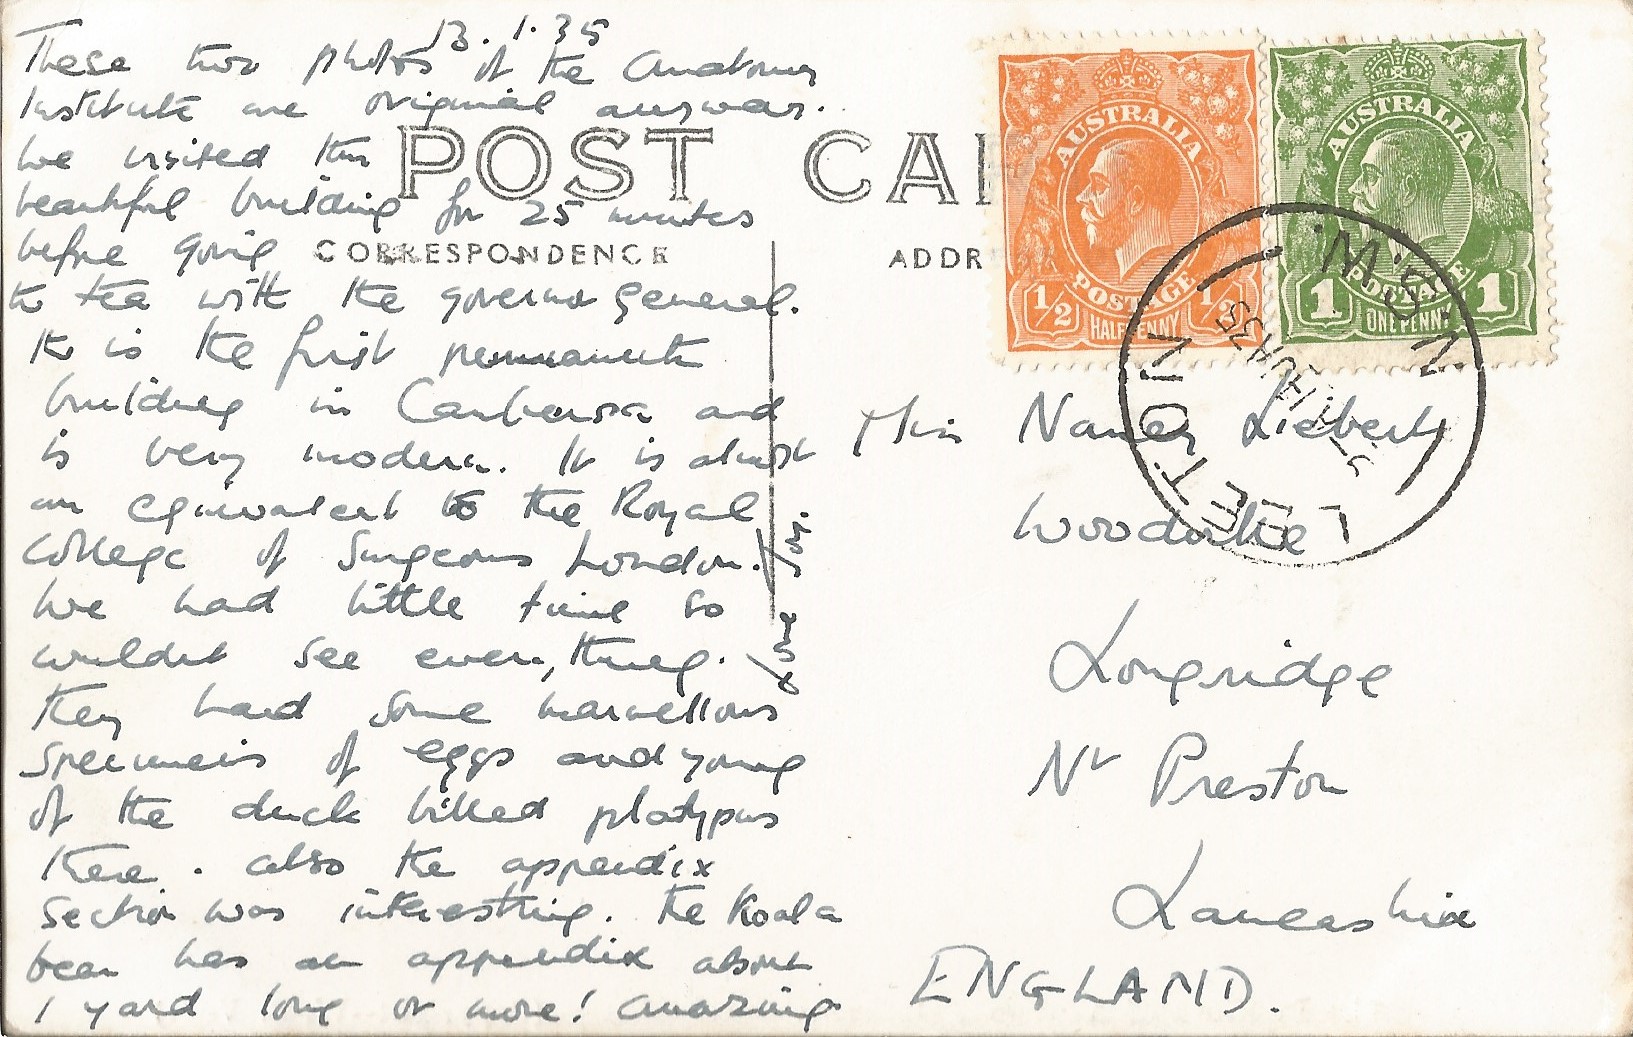 13.1.35
These two photos of the Anatomy
Institute are original answer.
We visited this
beautiful building for 25 minutes
before going
to tea with the Governor General.
It is the first permanent
building in Canberra and
is very modern. It is almost
an equivalent to the Royal
College of Surgeons London.
We had little time so
couldnt see everything.
They had some marvellous
specimens of eggs and young
of the duck billed platypus
there. also the appendix
section was interesting. The Koala
bear has an appendix about
1 yard long or more! amazing
POST CA
CORRESPONDENCE
ADDR
AUSTRALIA
POSTAGE
1/2 1/2
HALFPENNY
AUSTRALIA
POSTAGE
1 1
ONE PENNY
LEETON N.S.W.
JA 35
Miss Nancy Lieberty
Longridge
Nr Preston
Lancashire
ENGLAND.